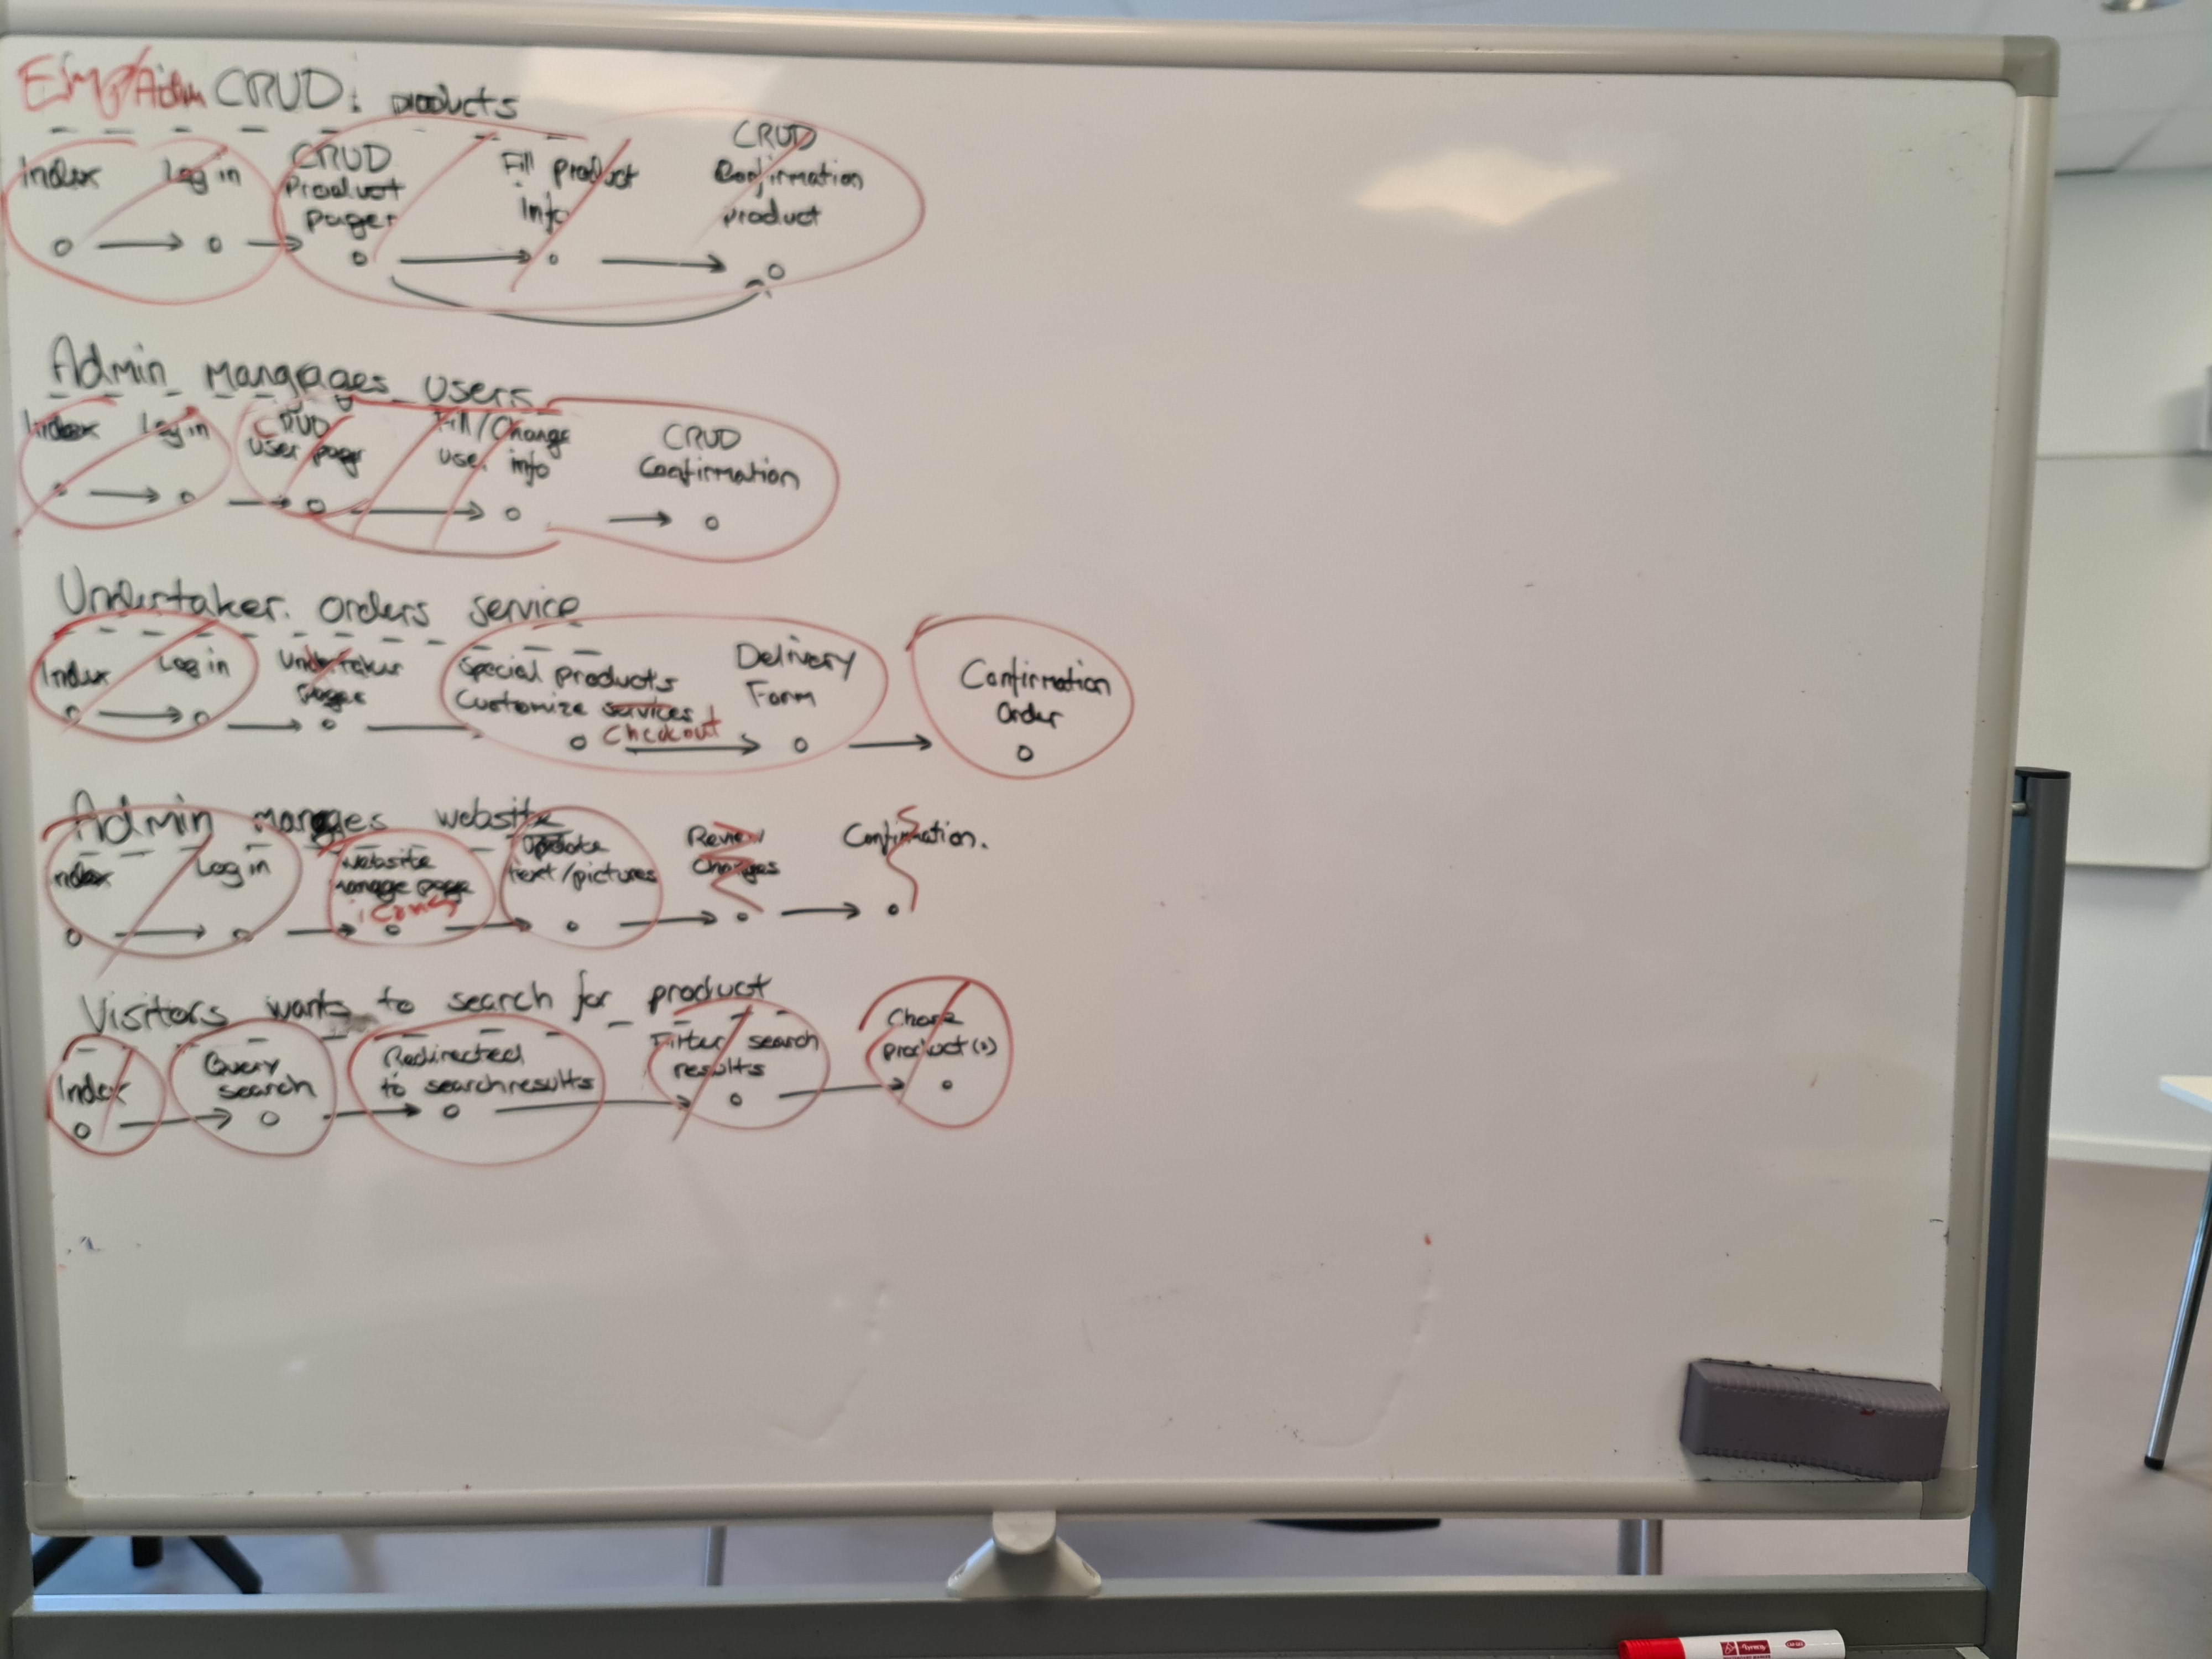 Emp/Adm CRUD: products
Index Log in CRUD Product pages Fill product info CRUD Confirmation product
Admin mangages users
Index Log in CRUD user page Fill/Change user info CRUD Confirmation
Undertaker orders service
Index Log in Undertaker pages Special products Customize services Checkout Delivery Form Confirmation Order
Admin manages website
Index Log in website manage page icons Update text/pictures Review Changes Confirmation.
Visitors wants to search for product
Index Query search Redirected to searchresults Filter search results Chose product(s)